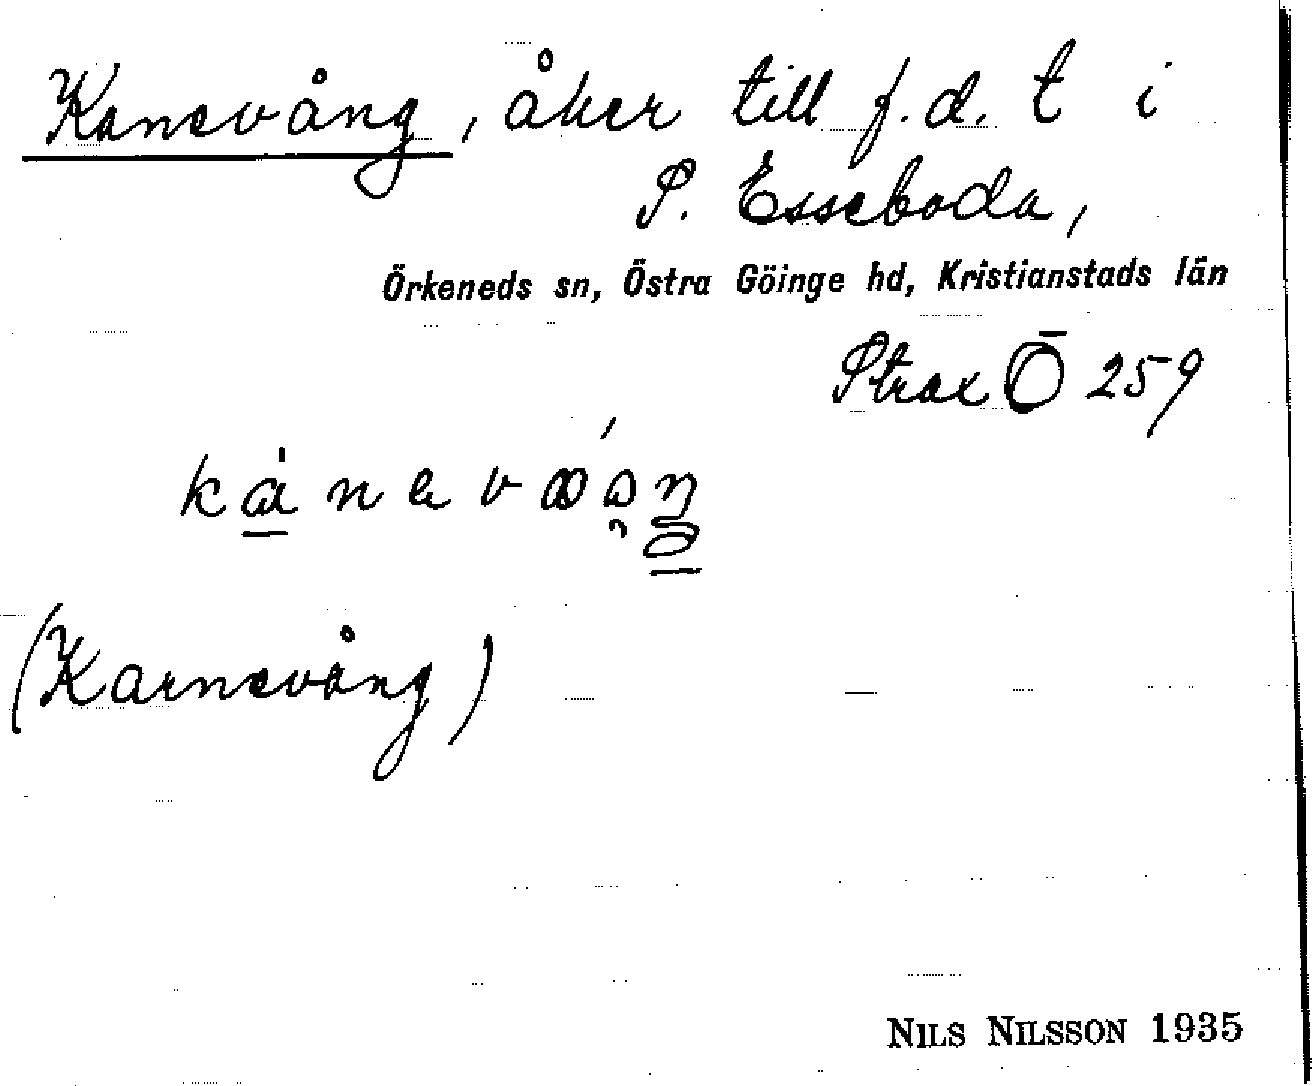 Kanevång, åker till f.d. t i
S. Esseboda,
Örkeneds sn, Östra Göinge hd, Kristianstads län
Strax Ō 259
(Karnevång)
NILS NILSSON 1935